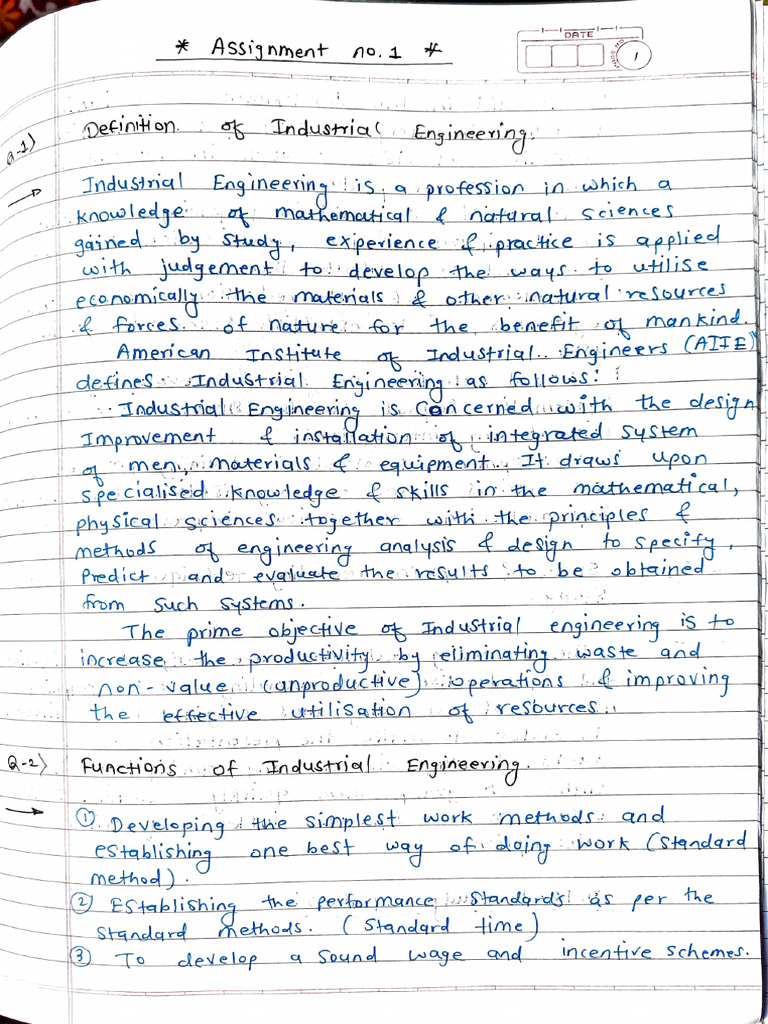 * Assignment no. 1 *
DATE
1
Q-1) Definition of Industrial Engineering.
→ Industrial Engineering is a profession in which a
knowledge of mathematical & natural sciences
gained by study, experience & practice is applied
with judgement to develop the ways to utilise
economically the materials & other natural resources
& forces of nature for the benefit of mankind.
American Institute of Industrial Engineers (AIIE)
defines Industrial Engineering as follows:
Industrial Engineering is concerned with the design
Improvement & installation of integrated system
of men, materials & equipment. It draws upon
specialised knowledge & skills in the mathematical,
physical sciences together with the principles &
methods of engineering analysis & design to specify,
Predict and evaluate the results to be obtained
from such systems.
The prime objective of Industrial engineering is to
increase the productivity by eliminating waste and
non-value (unproductive) operations & improving
the effective utilisation of resources.
Q-2) Functions of Industrial Engineering.
→ ① Developing the simplest work methods and
establishing one best way of doing work (Standard
method).
② Establishing the performance standards as per the
standard methods. (Standard time)
③ To develop a sound wage and incentive schemes.